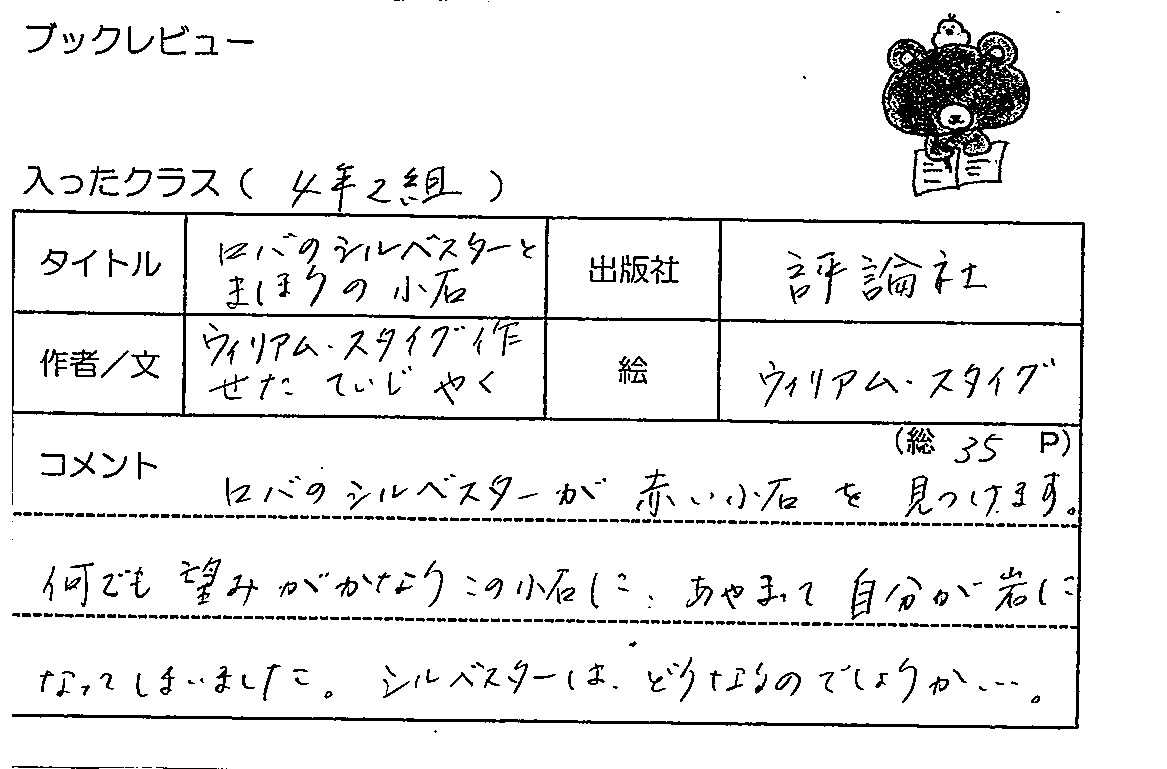 ブックレビュー
入ったクラス( 4年2組 )
タイトル
ロバのシルベスターと
まほうの小石
出版社
評論社
作者／文
ウィリアム・スタイグ作
せた ていじ やく
絵
ウィリアム・スタイグ
(総 35 P)
コメント
ロバのシルベスターが 赤い小石 を 見つけます。
何でも 望みがかなうこの小石に、あやまって 自分が岩に
なってしまいました。 シルベスターは、どうなるのでしょうか…。